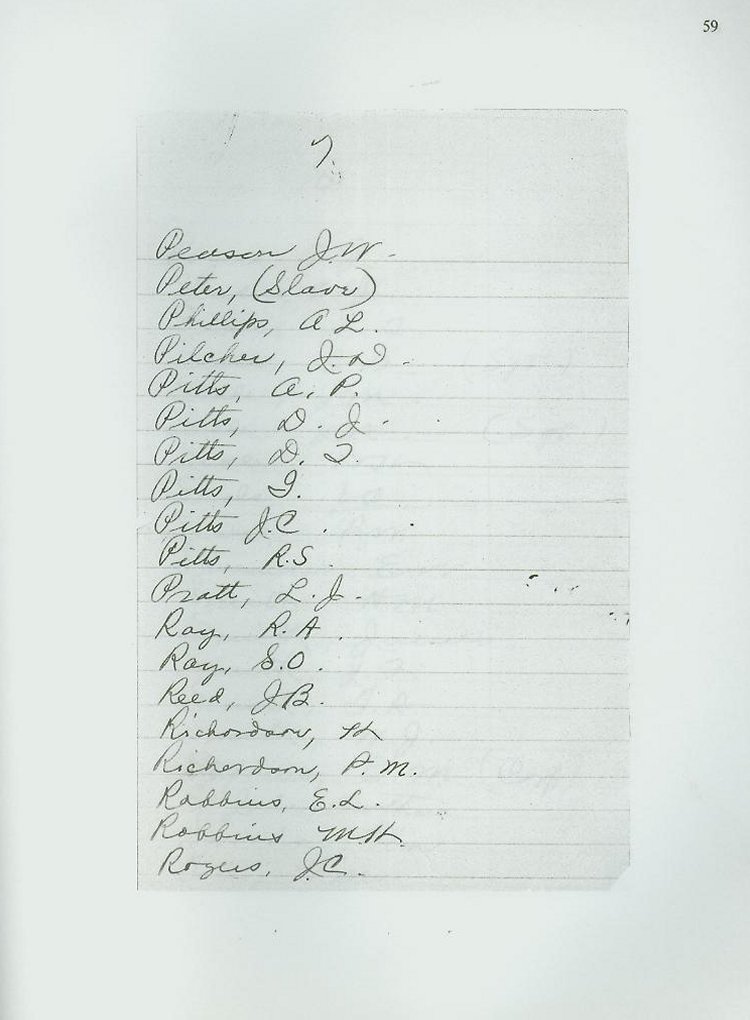 59
7.
Pearson J.W.
Peter, (Slave)
Phillips, A L.
Pilcher, J. D.
Pitts, A. P.
Pitts, D. J.
Pitts, D. T.
Pitts, I.
Pitts J.C.
Pitts, R.S.
Pratt, L. J.
Ray, R. A.
Ray, S.O.
Reed, J.B.
Richardson, H
Richardson, P. M.
Robbins, E.L.
Robbins M.H.
Rogers, J.C.